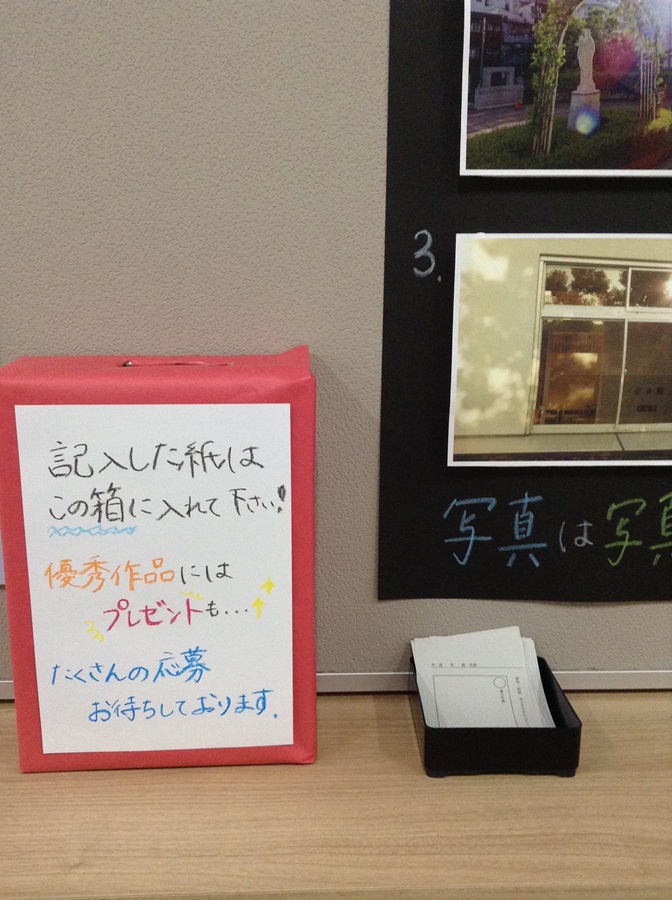 記入した紙は
この箱に入れて下さい!
優秀作品には
プレゼントも...
たくさんの応募
お待ちしております。
3.
写真は写真